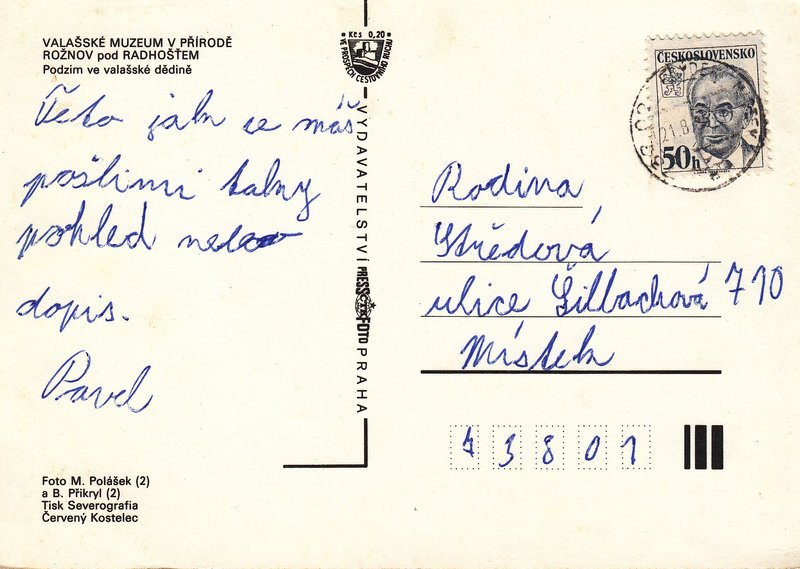 VALAŠSKÉ MUZEUM V PŘÍRODĚ
ROŽNOV pod RADHOŠTEM
Podzim ve valašské dědině
Teto jak se máš
pošlimi takny
pohled nebo
dopis.
Pavel
Kčs 0,20
VE PROSPĚCH CESTOVNÍHO RUCHU
VYDAVATELSTVÍ PRESSFOTO PRAHA
ČTK
ČESKOSLOVENSKO
50h
21.8
Rodina
Středová
ulice Šilbachová 710
Místek
73801
Foto M. Polášek (2)
a B. Přikryl (2)
Tisk Severografia
Červený Kostelec